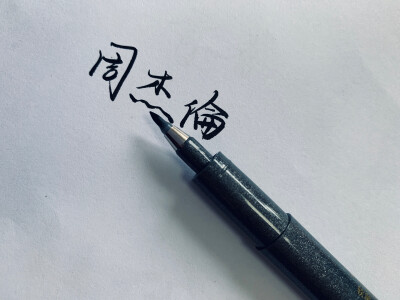 周杰倫